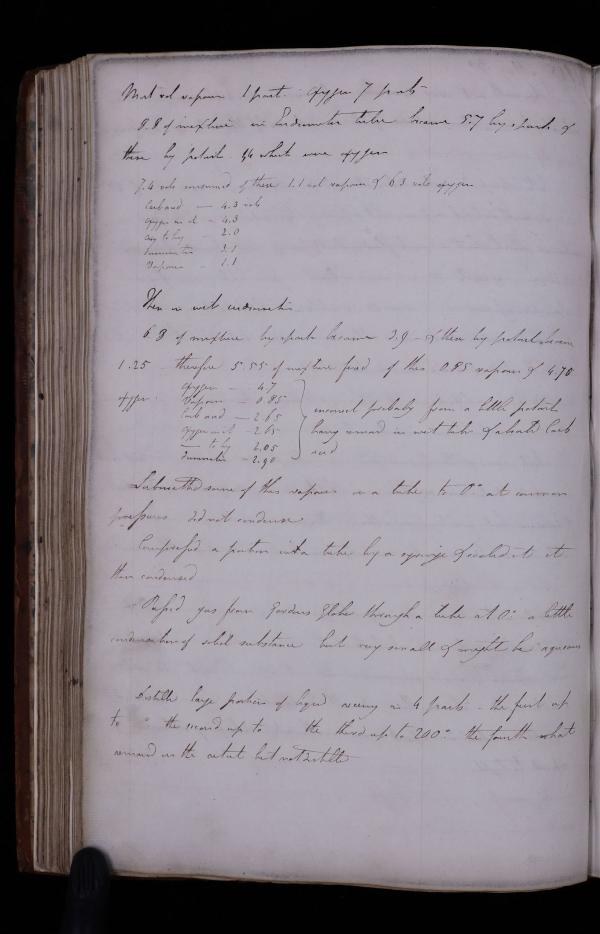 Most vol vapour 1 part - oxygen 7 parts
8.8 of mixture in Eudiometer tube became 5.7 by spark &
these by potash 1.4 which were oxygen
7.4 vols consumed of these 1.1 vol vapour & 6.3 vols oxygen
Carb acid — 4.3 vols
oxygen in it - 4.3
oxy to hy - 2.0
Diminution 3.1
Vapour - 1.1
Then in wet eudiometer
6.8 of mixture by spark became 3.9 - & these by potash became
1.25 therefore 5.55 of mixture fired of this 0.85 vapour & 4.70
oxygen.
oxygen — 4.7
Vapour — 0.85
Carb acid — 2.65
oxygen in it - 2.65
— to hy 2.05
Diminution - 2.90
incorrect probably from a little potash
having remained in wet tube & absorbed Carb
acid
Submitted some of this vapour in a tube to 0° at common
pressures did not condense
Compressed a portion into a tube by a syringe & cooled it it
then condensed
Passed gas from Gordons Globe through a tube at 0° a little
condensation of solid substance but very small & might be aqueous
Distilled large portion of liquid receiving in 4 parts - the first up
to ° the second up to the third up to 200° the fourth what
remained in the retort but not distilled